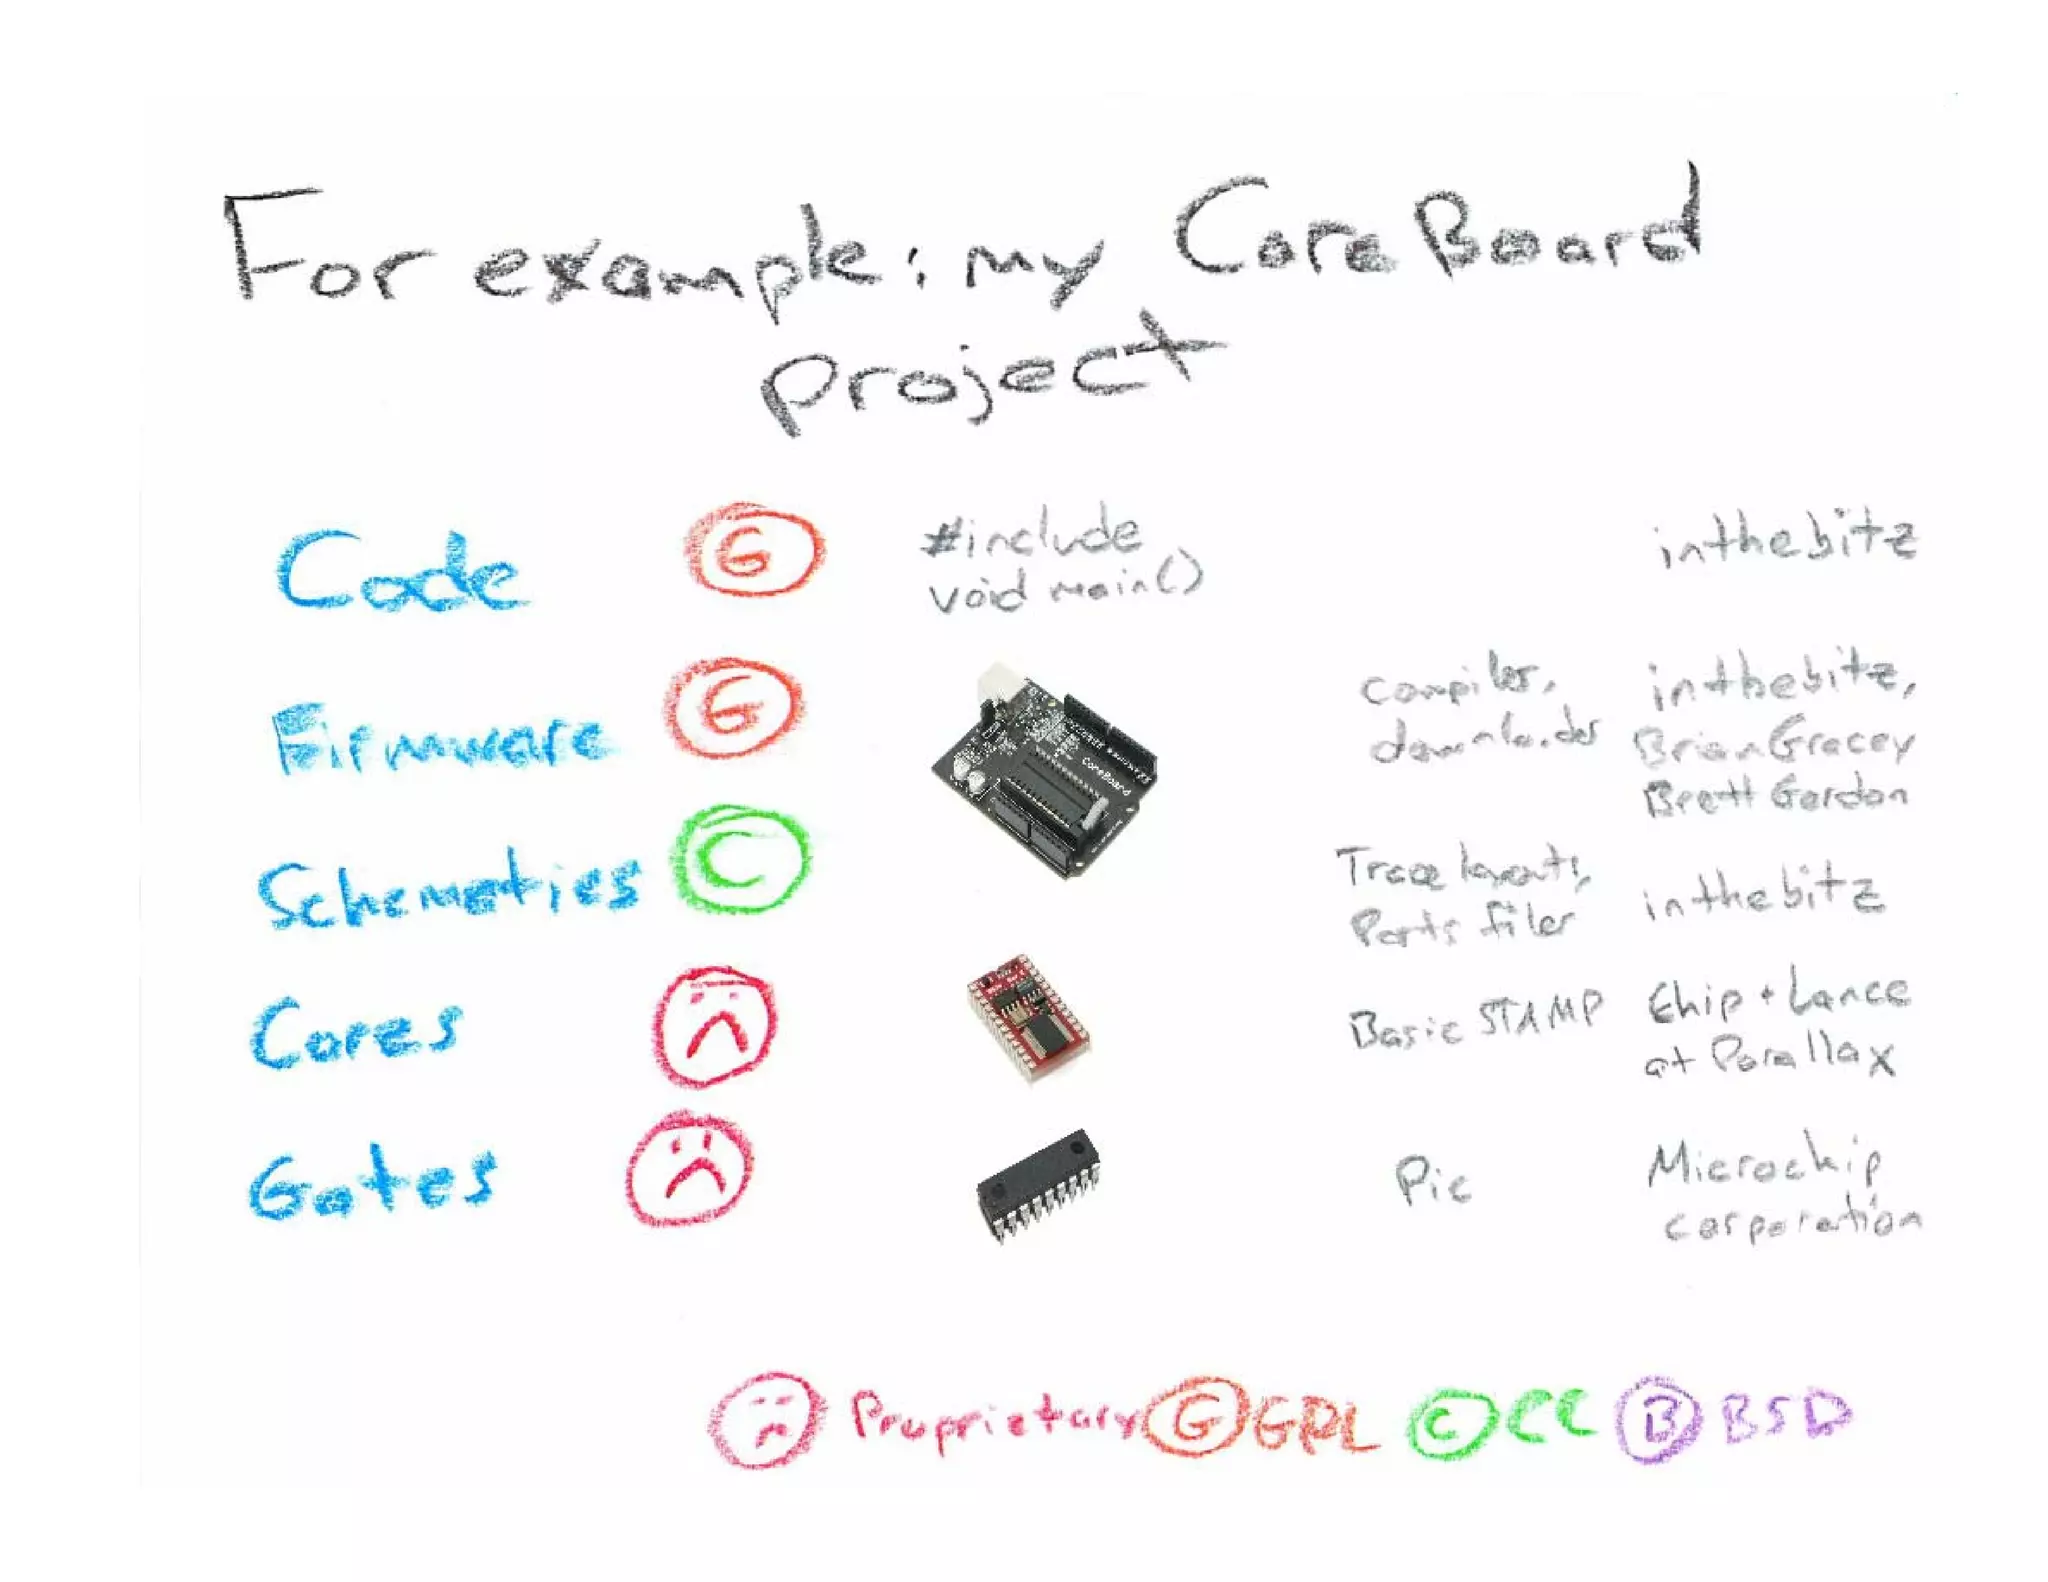 For example: my CoreBoard
project
Code G #include
void main() inthebitz
Firmware G compiler,
downloader inthebitz,
Brian Gracey
Brett Gordon
CoreBoard
Schematics C Trace layouts,
Parts files inthebitz
Cores Basic STAMP Chip + Lance
at Parallax
Gates Pic Microchip
corporation
Proprietary G GPL C CC B BSD